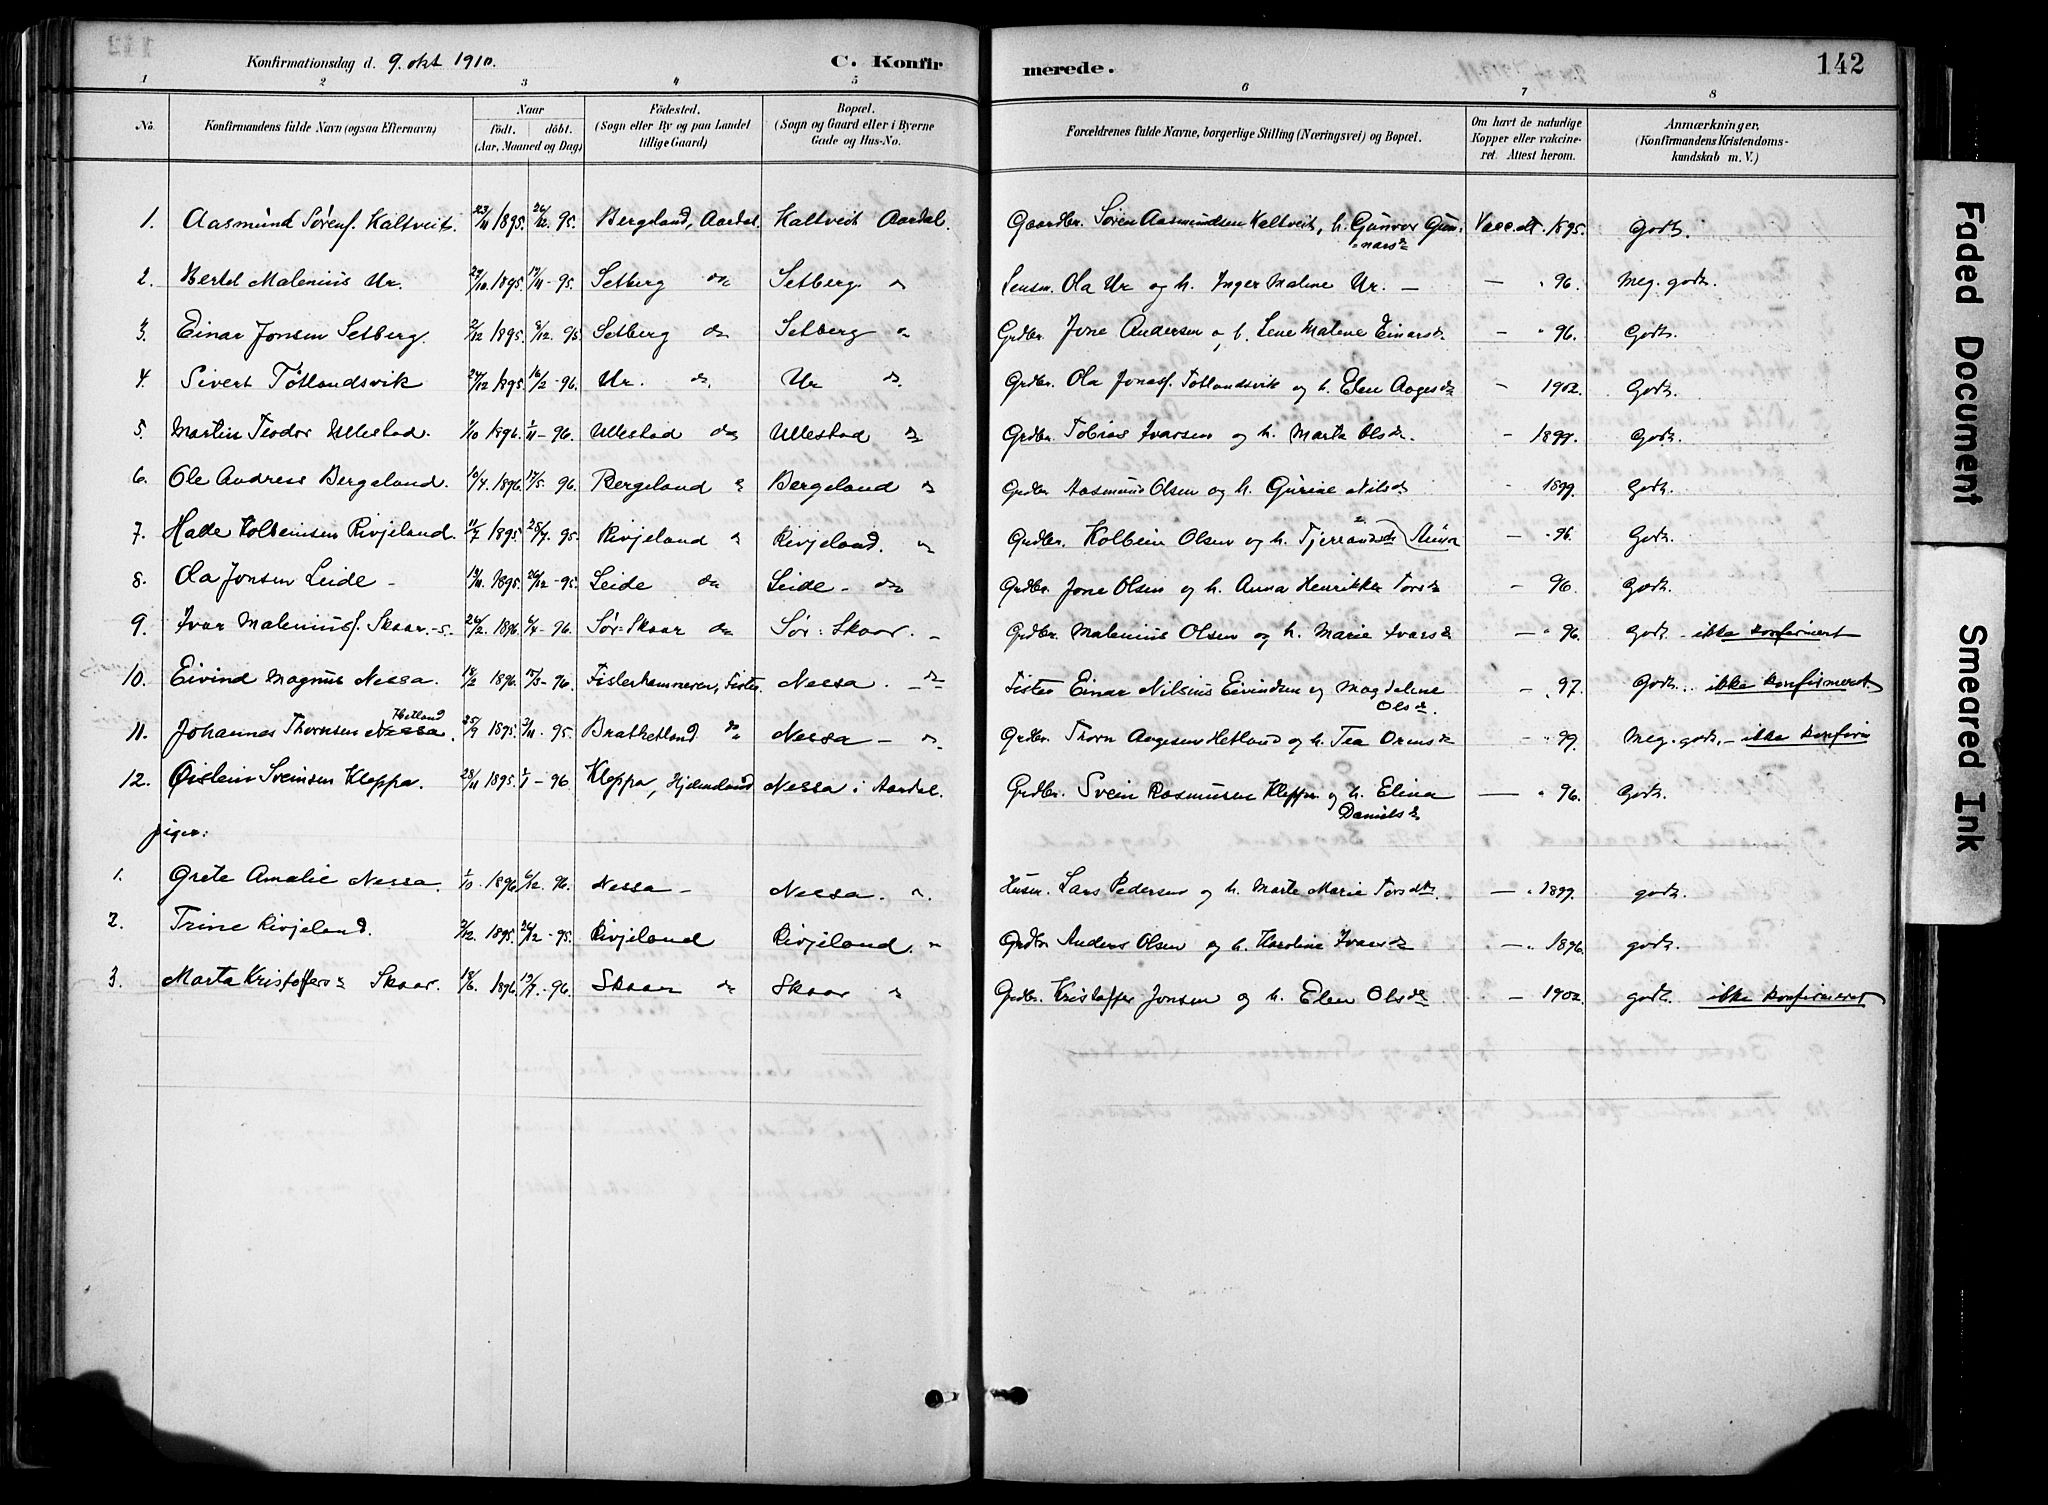 Konfirmationsdag d. 9. okt 1910.
C. Konfirmerede.
142
1 2 3 4 5 6 7 8
No.
Konfirmandens fulde Navn (ogsaa Efternavn)
Naar
födt. döbt.
(Aar, Maaned og Dag)
Födested.
(Sogn eller By og paa Landet
tillige Gaard)
Bopæl.
(Sogn og Gaard eller i Byerne
Gade og Hus-No.
Forældrenes fulde Navne, borgerlige Stilling (Næringsvei) og Bopæl.
Om havt de naturlige
Kopper eller vakcine-
ret. Attest herom.
Anmærkninger,
(Konfirmandens Kristendoms-
kundskab m. V.)
1. Aasmund Sørenf. Kaltveit. 23/11 1895. 26/12. 95. Bergeland, Aardal. Kaltveit Aardal. Gaardbr. Søren Aasmundsen Kaltveit, h. Gunvor Gun- Vacc. att. 1895. Godt.
narsd.
2. Bertel Malenius Ur. 29/10. 1895. 17/11 - 95. Setberg do Setberg. do Lensm. Ola Ur og h. Inger Malene Ur. — — " 96. Meg. godt.
3. Einar Jonsen Setberg. 2/12 1895. 8/12. 95 Setberg do Setberg do Grdbr. Jone Andersen og h. Lene Malene Einarsd. — " 96. Godt.
4. Sivert Tøtlandsvik 24/12 1895. 16/2 - 96. Ur. do. Ur do. Grdbr. Ola Jonasf. Tøtlandsvik og h. Elen Aagesd. - 1902. Godt.
5. Martin Teodor Ullestad. 1/10 1896. 1/11 - 96. Ullestad do Ullestad do Grdbr. Tobias Ivarsen og h. Marta Olsd. - 1899. Godt.
6. Ole Andreas Bergeland. 10/4. 1896. 17/5. 96. Bergeland do Bergeland do Grdbr. Aasmund Olsen og h. Gurine Nilsd. - 1899. Godt.
7. Halle Kolbeinsen Rivjeland. 11/7 1895. 28/7. 95. Rivjeland do Rivjeland. do Grdbr. Kolbein Olsen og h. Tjerrandsd. — " 96. Godt.
8. Ola Jonsen Leide - 19/11. 1895. 26/12 - 95. Leide do Leide - do Grdbr. Jone Olsen og h. Anna Henrikke Torsd. — 96. Godt.
9. Ivar Maleniusf. Skaar. -s. 26/2. 1896 6/4 - 96. Sør-Skaar do Sør-Skaar. - Grdbr. Malenius Olsen og h. Marie Ivarsd. — " 96. Godt - ikke konfirmert
10. Eivind Magnus Nessa. 18/2 1896. 15/3 - 96. Fisterhammeren, Fister Nessa. - do Fister Einar Nilsius Eivindsen og Magdalene — " 97. Godt. - ikke konfirmeret.
Olsd.
Hetland
11. Johannes Thornsen Nessa. 25/9 1895. 3/11 - 95. Brathetland do Nessa - do. Grdbr. Thorn Aagesen Hetland og h. Tea Ormsd. - " 99. Meg. godt. - ikke konfirm
12. Øistein Sveinsen Kleppa. 28/11 1895. 1/1 - 96. Kleppa, Hjelmeland Nessa i Aardal. Grdbr. Svein Rasmusen Kleppa og h. Elina — " 96. Godt.
Danielsd.
piger:
1. Grete Amalie Nessa. 1/10. 1896 6/12. 96. Nessa - Nessa. do. Husm. Lars Pedersen og h. Marte Marie Torsd. — " 1899. godt.
2. Trine Rivjeland. 2/12. 1895. 26/12 - 95. Rivjeland Rivjeland. do Grdbr. Anders Olsen og h. Karoline Ivarsd. — " 1896. godt.
3. Marta Kristoffersd. Skaar. 18/6. 1896. 19/7. - 96. Skaar do Skaar do Grdbr. Kristoffer Jonsen og h. Elen Olsd. - 1902. godt. ikke konfirmeret
Faded Document
Smeared Ink